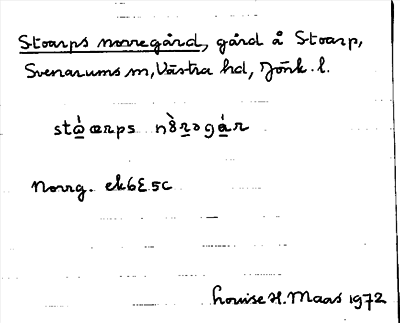 Stoarps norregård, gård å Stoarp,
Svenarums sn, Västra hd, Jönk. l.
Norrg. ek6E5c
Louise H. Maas 1972